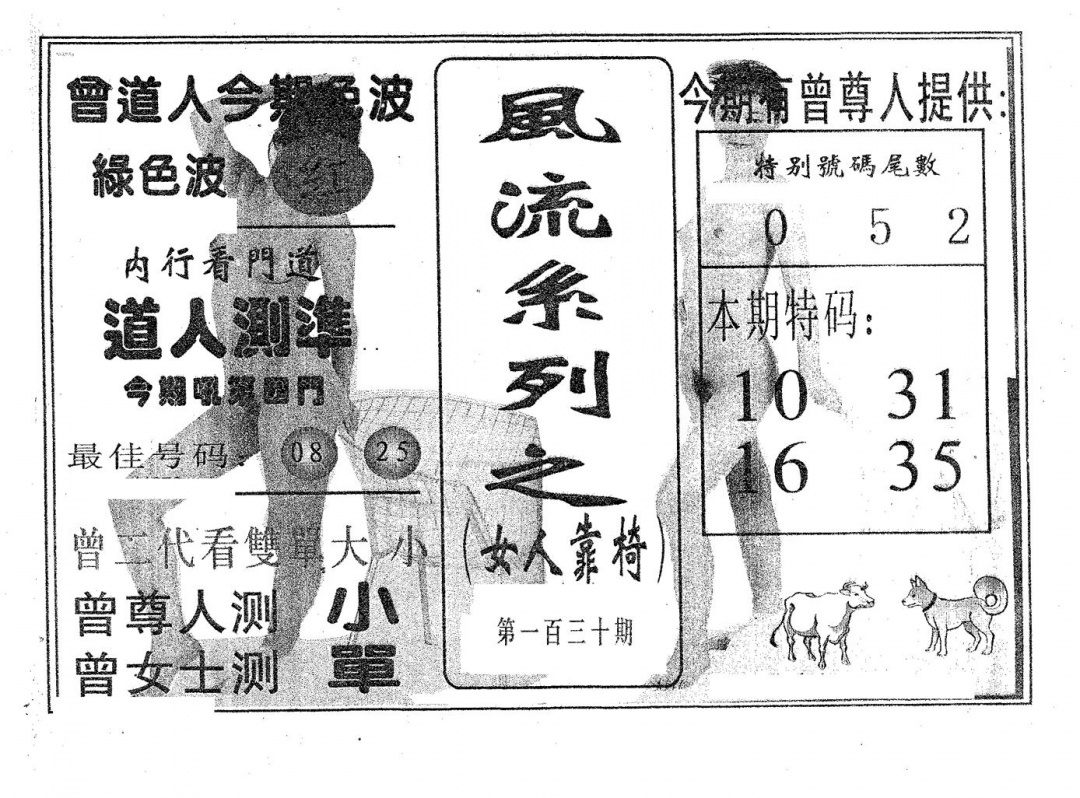 曾道人今期色波
綠色波 紅
内行看門道
道人測準
今期吼葉四門
最佳号码: 08 25
曾二代看雙單大小
曾尊人测 小
曾女士测 單
風流系列之
(女人靠椅)
第一百三十期
今期有曾尊人提供:
特别號碼尾數
0 5 2
本期特码:
10 31
16 35